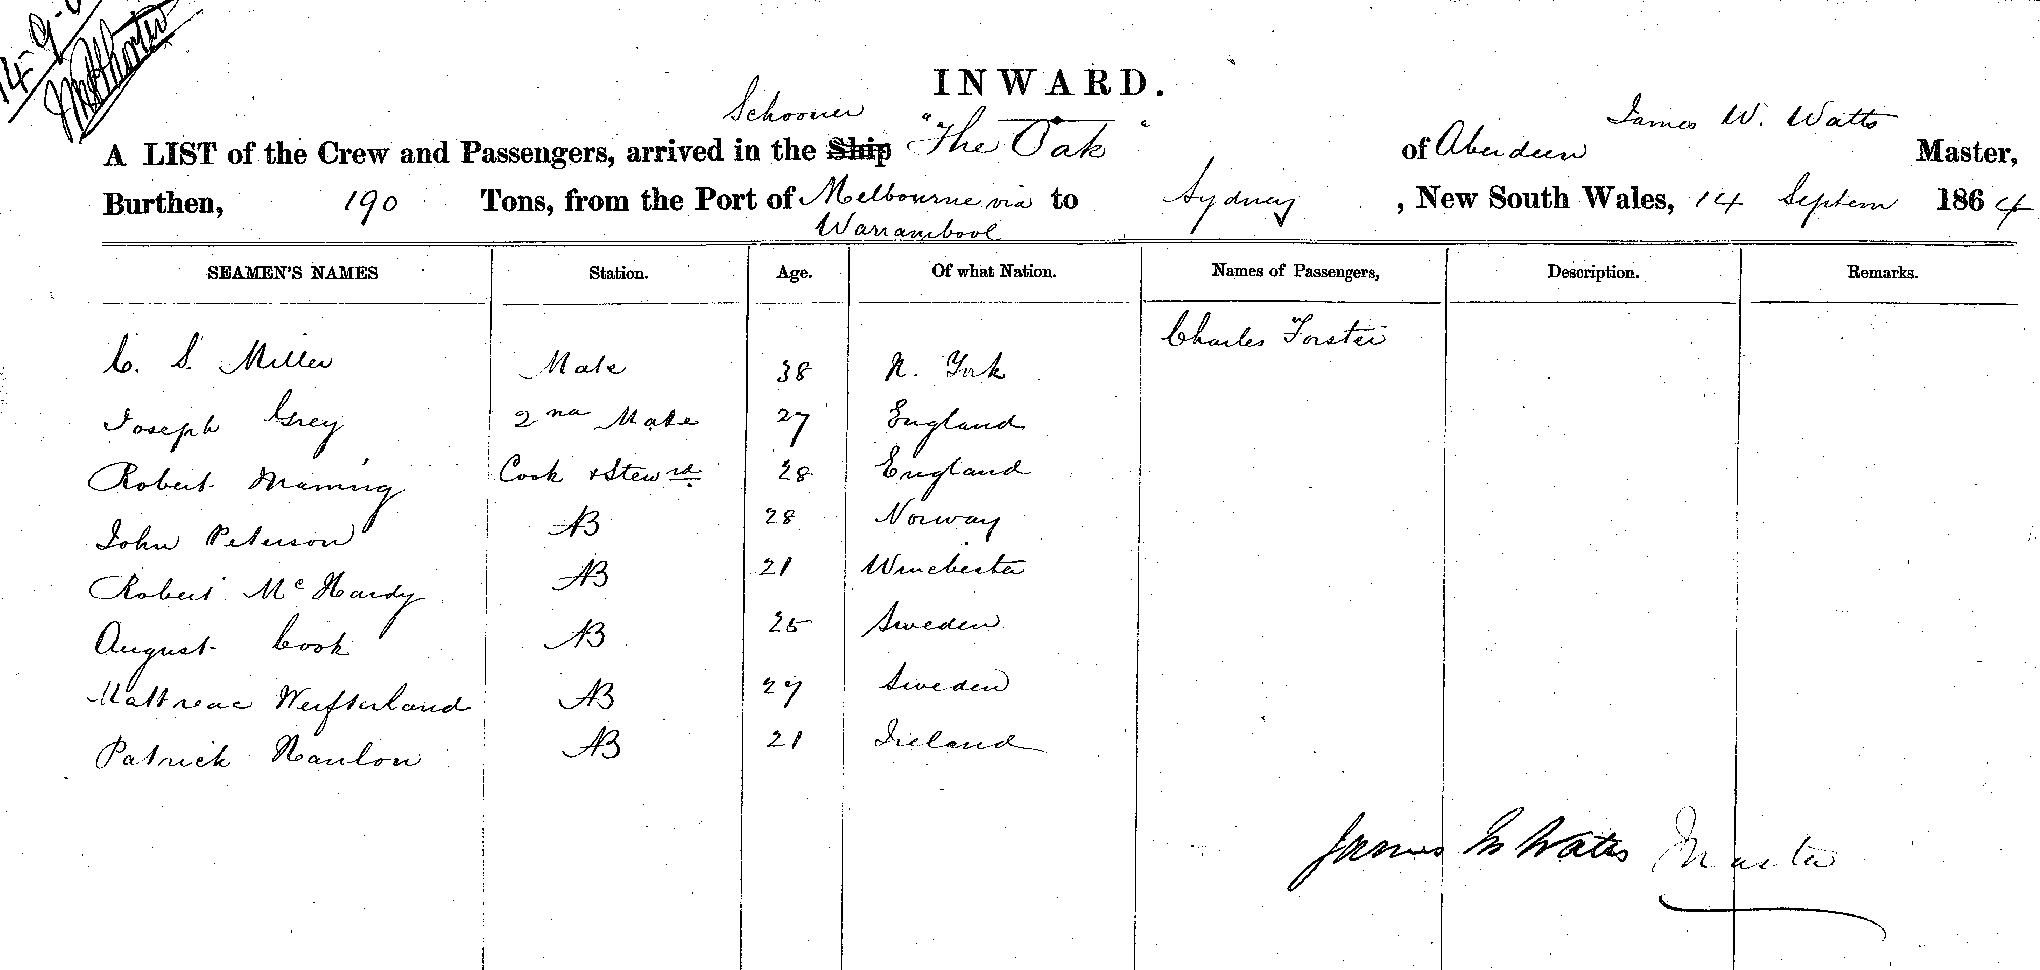 14-9-
INWARD.
Schooner James W. Watts
A LIST of the Crew and Passengers, arrived in the Ship "The Oak" of Aberdeen Master,
Burthen, 190 Tons, from the Port of Melbourne via to Sydney, New South Wales, 14 Septem 1864
Warrambool
SEAMEN'S NAMES Station. Age. Of what Nation. Names of Passengers, Description. Remarks.
Charles Forster
C. S. Miller Mate 38 N. York
Joseph Grey 2nd Mate 27 England
Robert Maning Cook & Stewrd 28 England
John Peterson AB 28 Norway
Robert McHardy AB 21 Winchester
August Cook AB 25 Sweden
AB 27 Sweden
Patrick Hanlon AB 21 Ireland
James W Watts Master